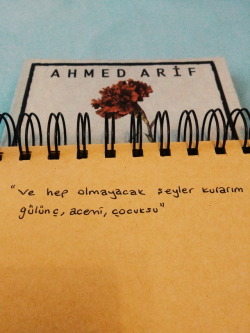 AHMED ARİF
"ve hep olmayacak şeyler kurarım
gülünç, acemi, çocuksu"